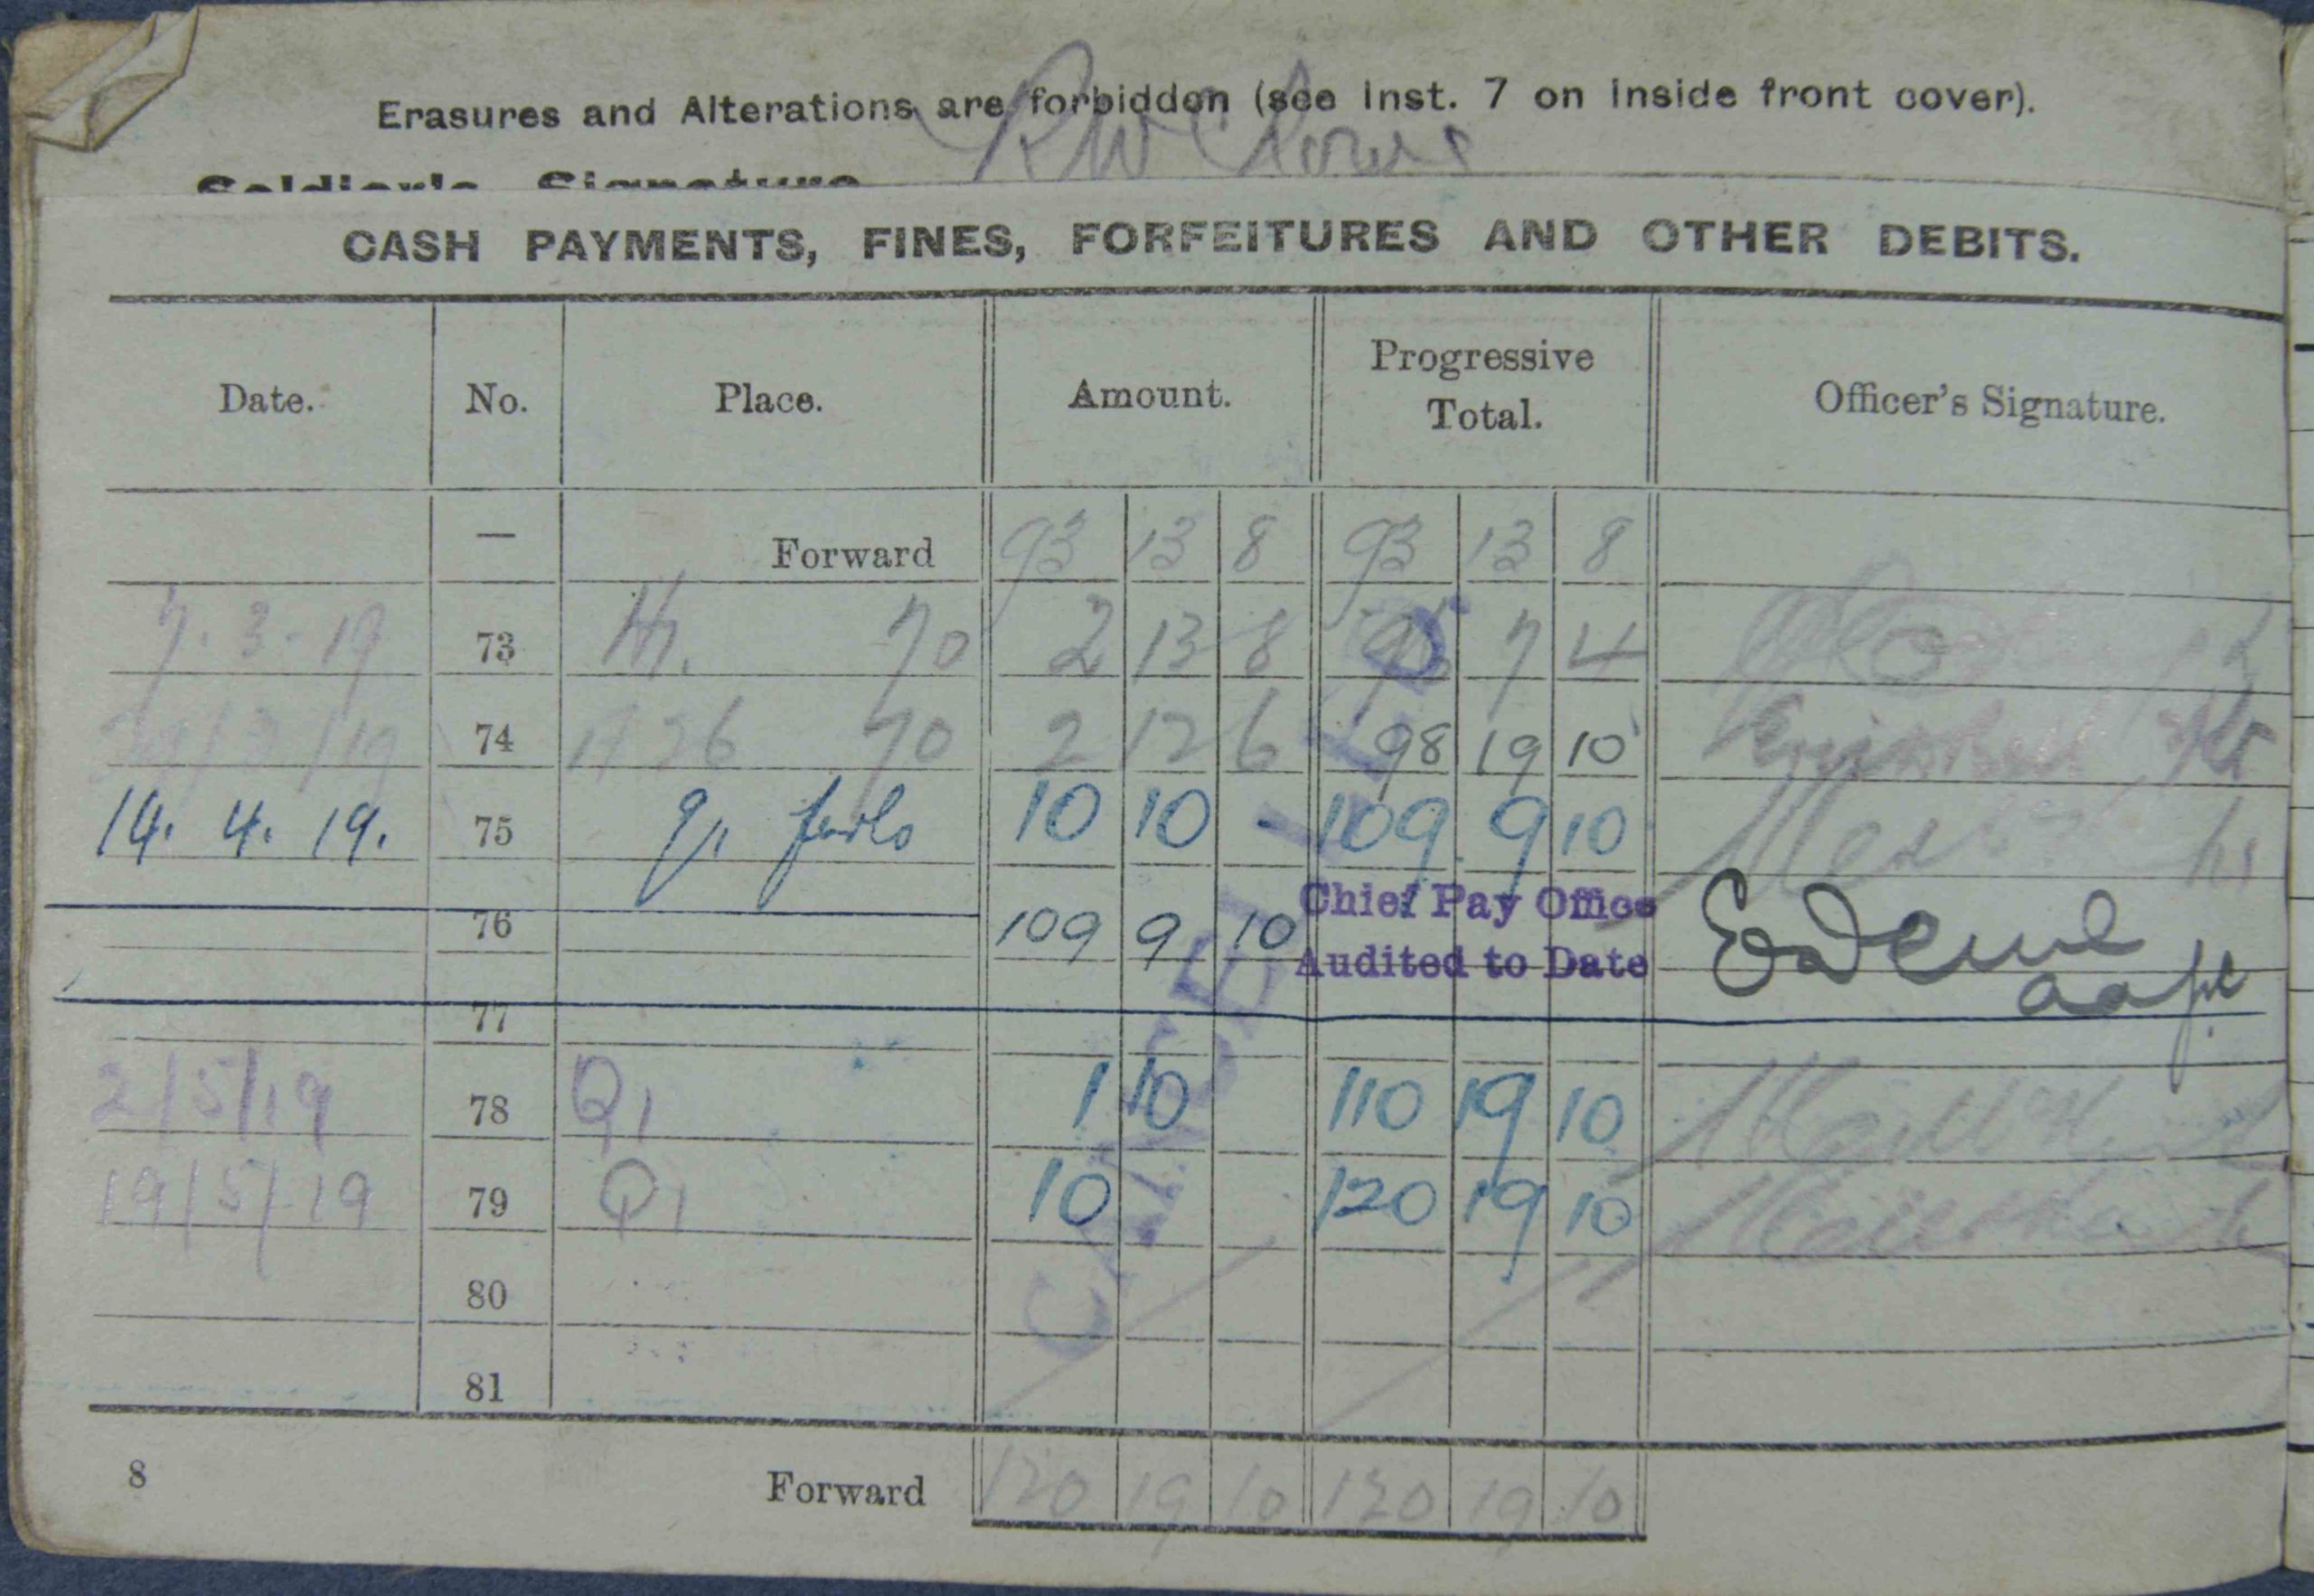 Erasures and Alterations are forbidden (see Inst. 7 on inside front cover).
Soldier's Signature RW
CASH PAYMENTS, FINES, FORFEITURES AND OTHER DEBITS.
Date. No. Place. Amount. Progressive Total. Officer's Signature.
— Forward 93 13 8 93 13 8
7.3.19 73 70 2 13 8 96 7 4
74 70 2 12 6 98 19 10
14.4.19. 75 10 10 - 109 9 10
76 109 9 10 Chief Pay Office
Audited to Date
77
2/5/19 78 Q1 1 10 110 19 10
19/5/19 79 Q1 10 120 19 10
80
81
CANCELLED
8 Forward 120 19 10 120 19 10